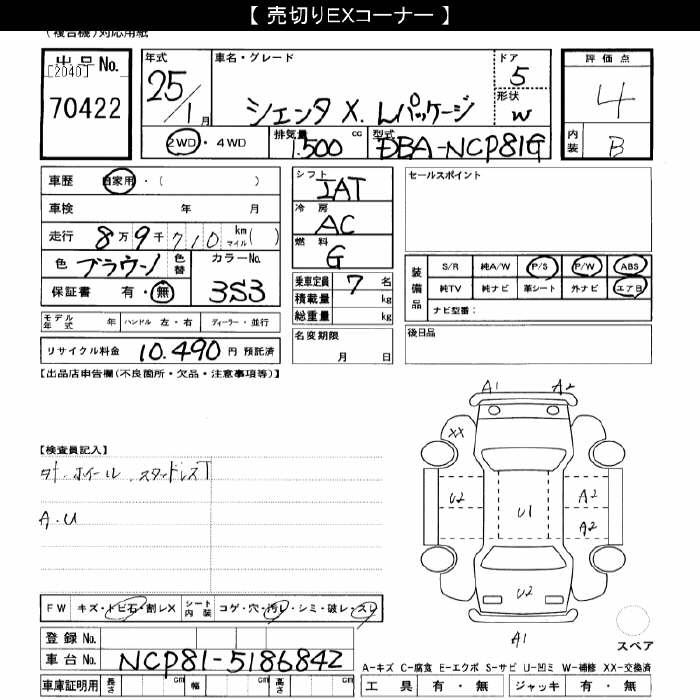 【 売切りEXコーナー 】
(複合機)対応用紙
出品 No.
[2040]
70422
年式
25/1月
車名・グレード
シエンタ X. Lパッケージ
ドア
5
形状
W
評価点
4
2WD・4WD
排気量
1.500 cc
型式
DBA-NCP81G
内装
B
車歴 自家用・( )
車検 年 月
走行 8万9千710 km マイル( )
色 ブラウン 色替 カラーNo.
保証書 有・無 3S3
モデル年式 年 ハンドル 左・右 ディーラー・並行
リサイクル料金 10.490 円 預託済
シフト
IAT
冷房
AC
燃料
G
乗車定員 7 名
積載量 kg
総重量 kg
名変期限
月 日
セールスポイント
装備品
S/R 純A/W P/S P/W ABS
純TV 純ナビ 革シート 外ナビ エアB
ナビ型番:
後日品
【出品店申告欄(不良箇所・欠品・注意事項等)】
【検査員記入】
ホイール. スタッドレスT
A.U
A1 A2
XX
U2 U1 A2
A2
U2
A1
スペア
FW キズ・トビ石・割レX シート内装 コゲ・穴・汚レ・シミ・破レ・スレ
登録 No.
車台 No. NCP81-5186842
車庫証明用 長さ cm 幅 cm 高さ cm
A-キズ C-腐食 E-エクボ S-サビ U-凹ミ W-補修 XX-交換済
工具 有・無 ジャッキ 有・無